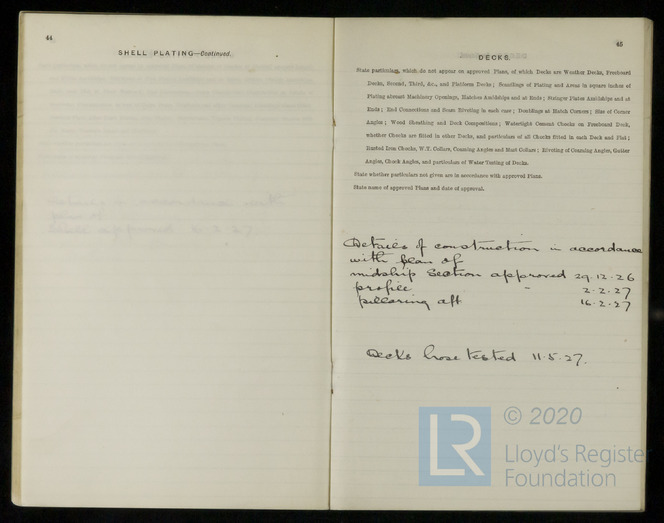 44
SHELL PLATING—Continued.
45
DECKS.
State particulars, which do not appear on approved Plans, of which Decks are Weather Decks, Freeboard
Decks, Second, Third, &c., and Platform Decks; Scantlings of Plating and Areas in square inches of
Plating abreast Machinery Openings, Hatches Amidships and at Ends; Stringer Plates Amidships and at
Ends; End Connections and Seam Riveting in each case; Doublings at Hatch Corners; Size of Corner
Angles; Wood Sheathing and Deck Compositions; Watertight Cement Chocks on Freeboard Deck,
whether Chocks are fitted in other Decks, and particulars of all Chocks fitted in each Deck and Flat;
Rusted Iron Chocks, W.T. Collars, Coaming Angles and Mast Collars; Riveting of Coaming Angles, Gutter
Angles, Chock Angles, and particulars of Water Testing of Decks.
State whether particulars not given are in accordance with approved Plans.
State name of approved Plans and date of approval.
Details of construction in accordance
with plan of
midship section approved 29.12.26
profile " 2.2.27
pillaring aft 16.2.27
Decks hose tested 11.5.27.
LR
© 2020
Lloyd's Register
Foundation